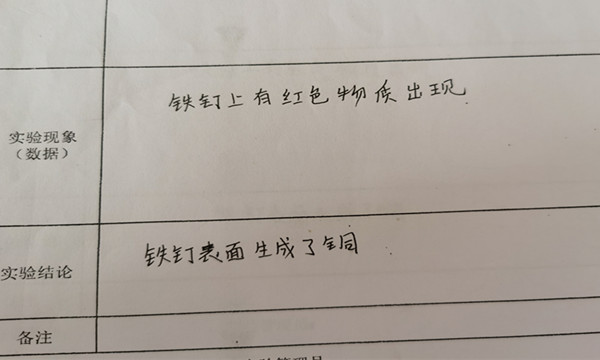 铁钉上有红色物质出现
实验现象
（数据）
铁钉表面生成了铜
实验结论
备注